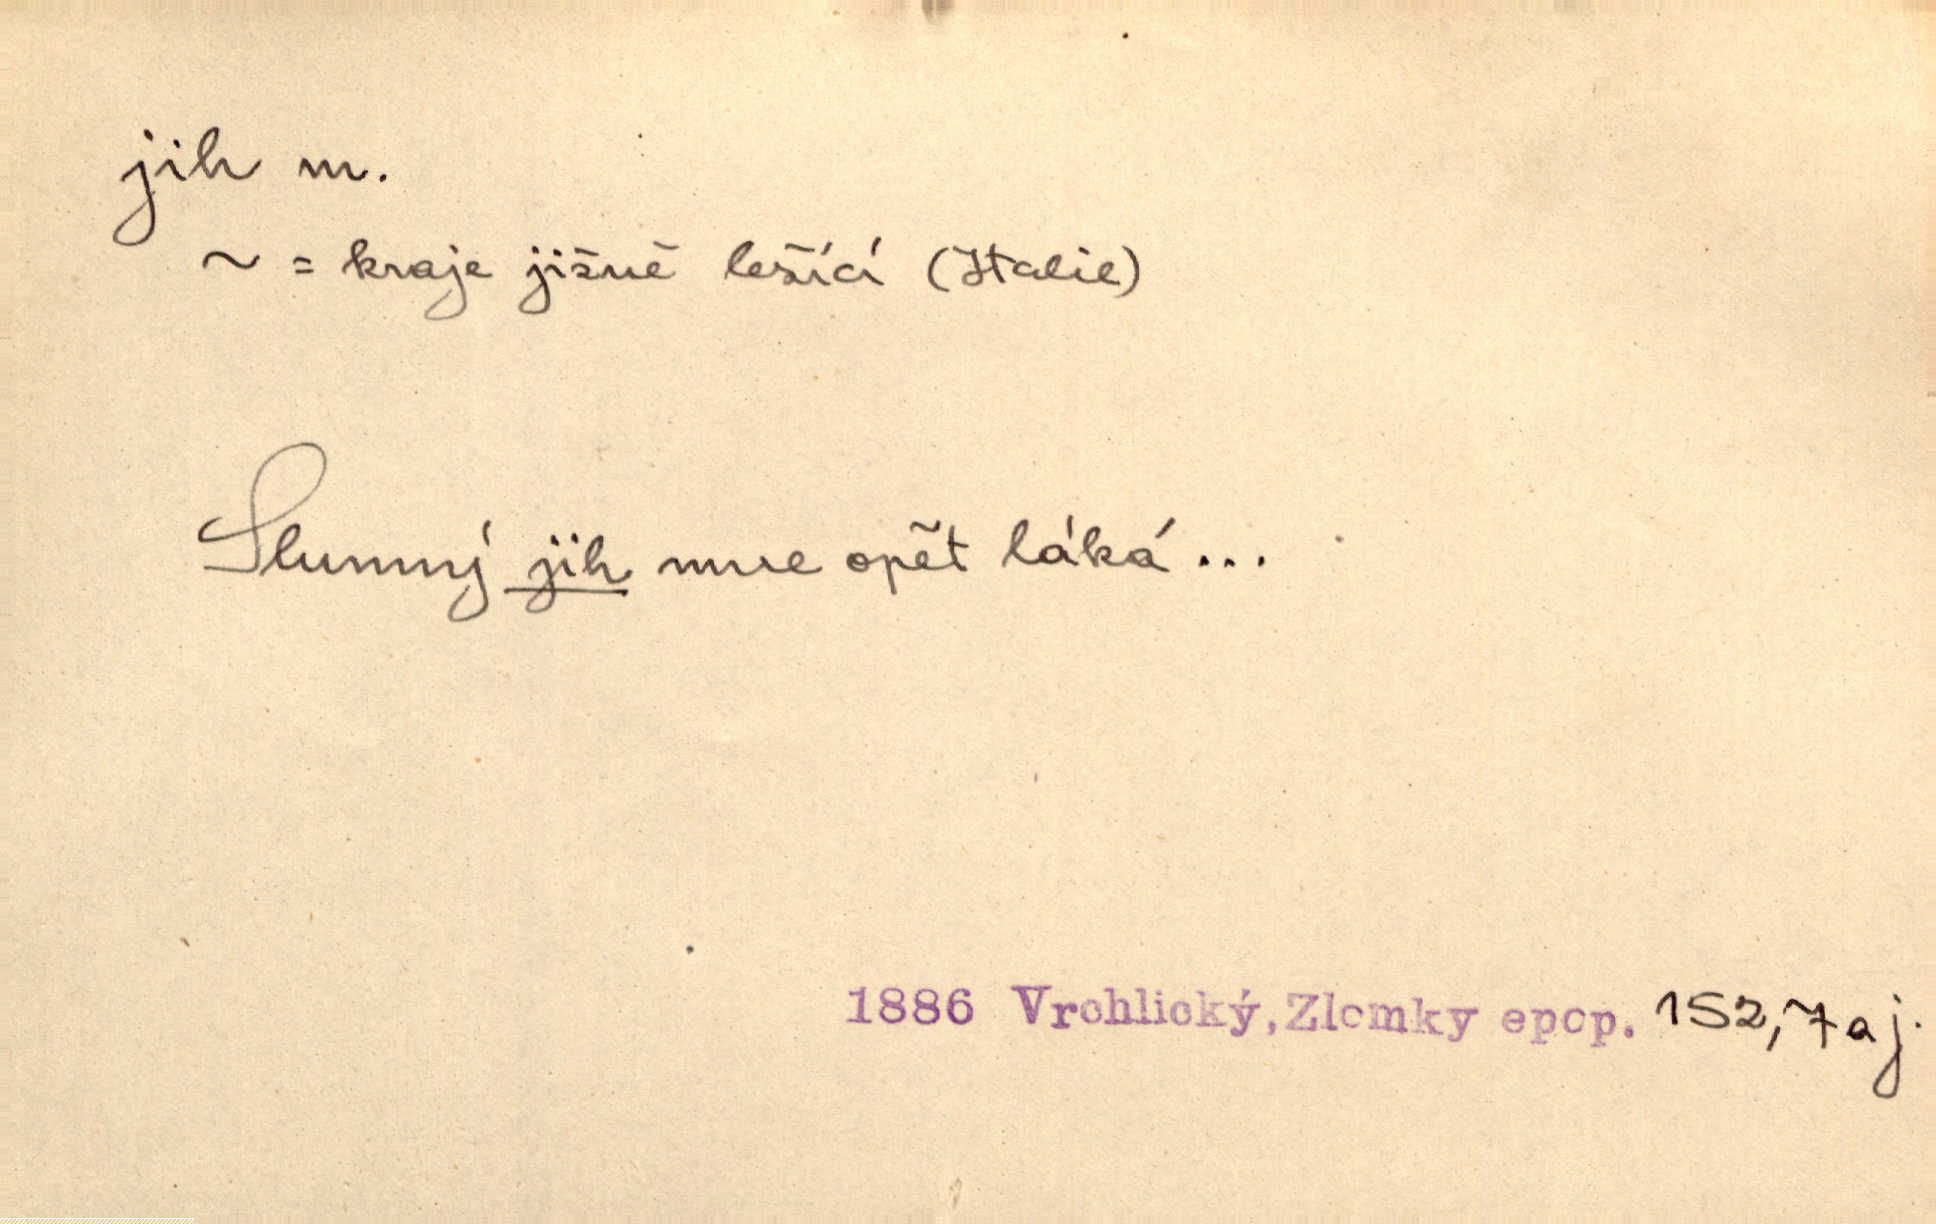 jih m.
~ = kraje jižně ležící (Italie)
Slunný jih mne opět láká...
1886 Vrchlický, Zlomky epop. 152,7 aj.